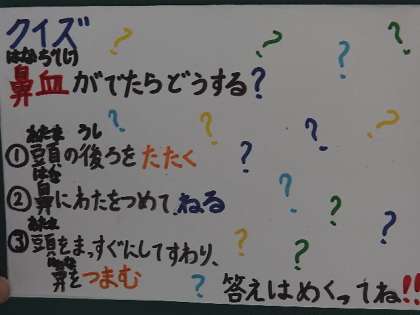 クイズ
はなぢ(じ)
鼻血がでたらどうする?
あたま うし
①頭の後ろをたたく
はな
②鼻にわたをつめて、ねる
あたま
③頭をまっすぐにしてすわり、
はな
鼻をつまむ
答えはめくってね!!